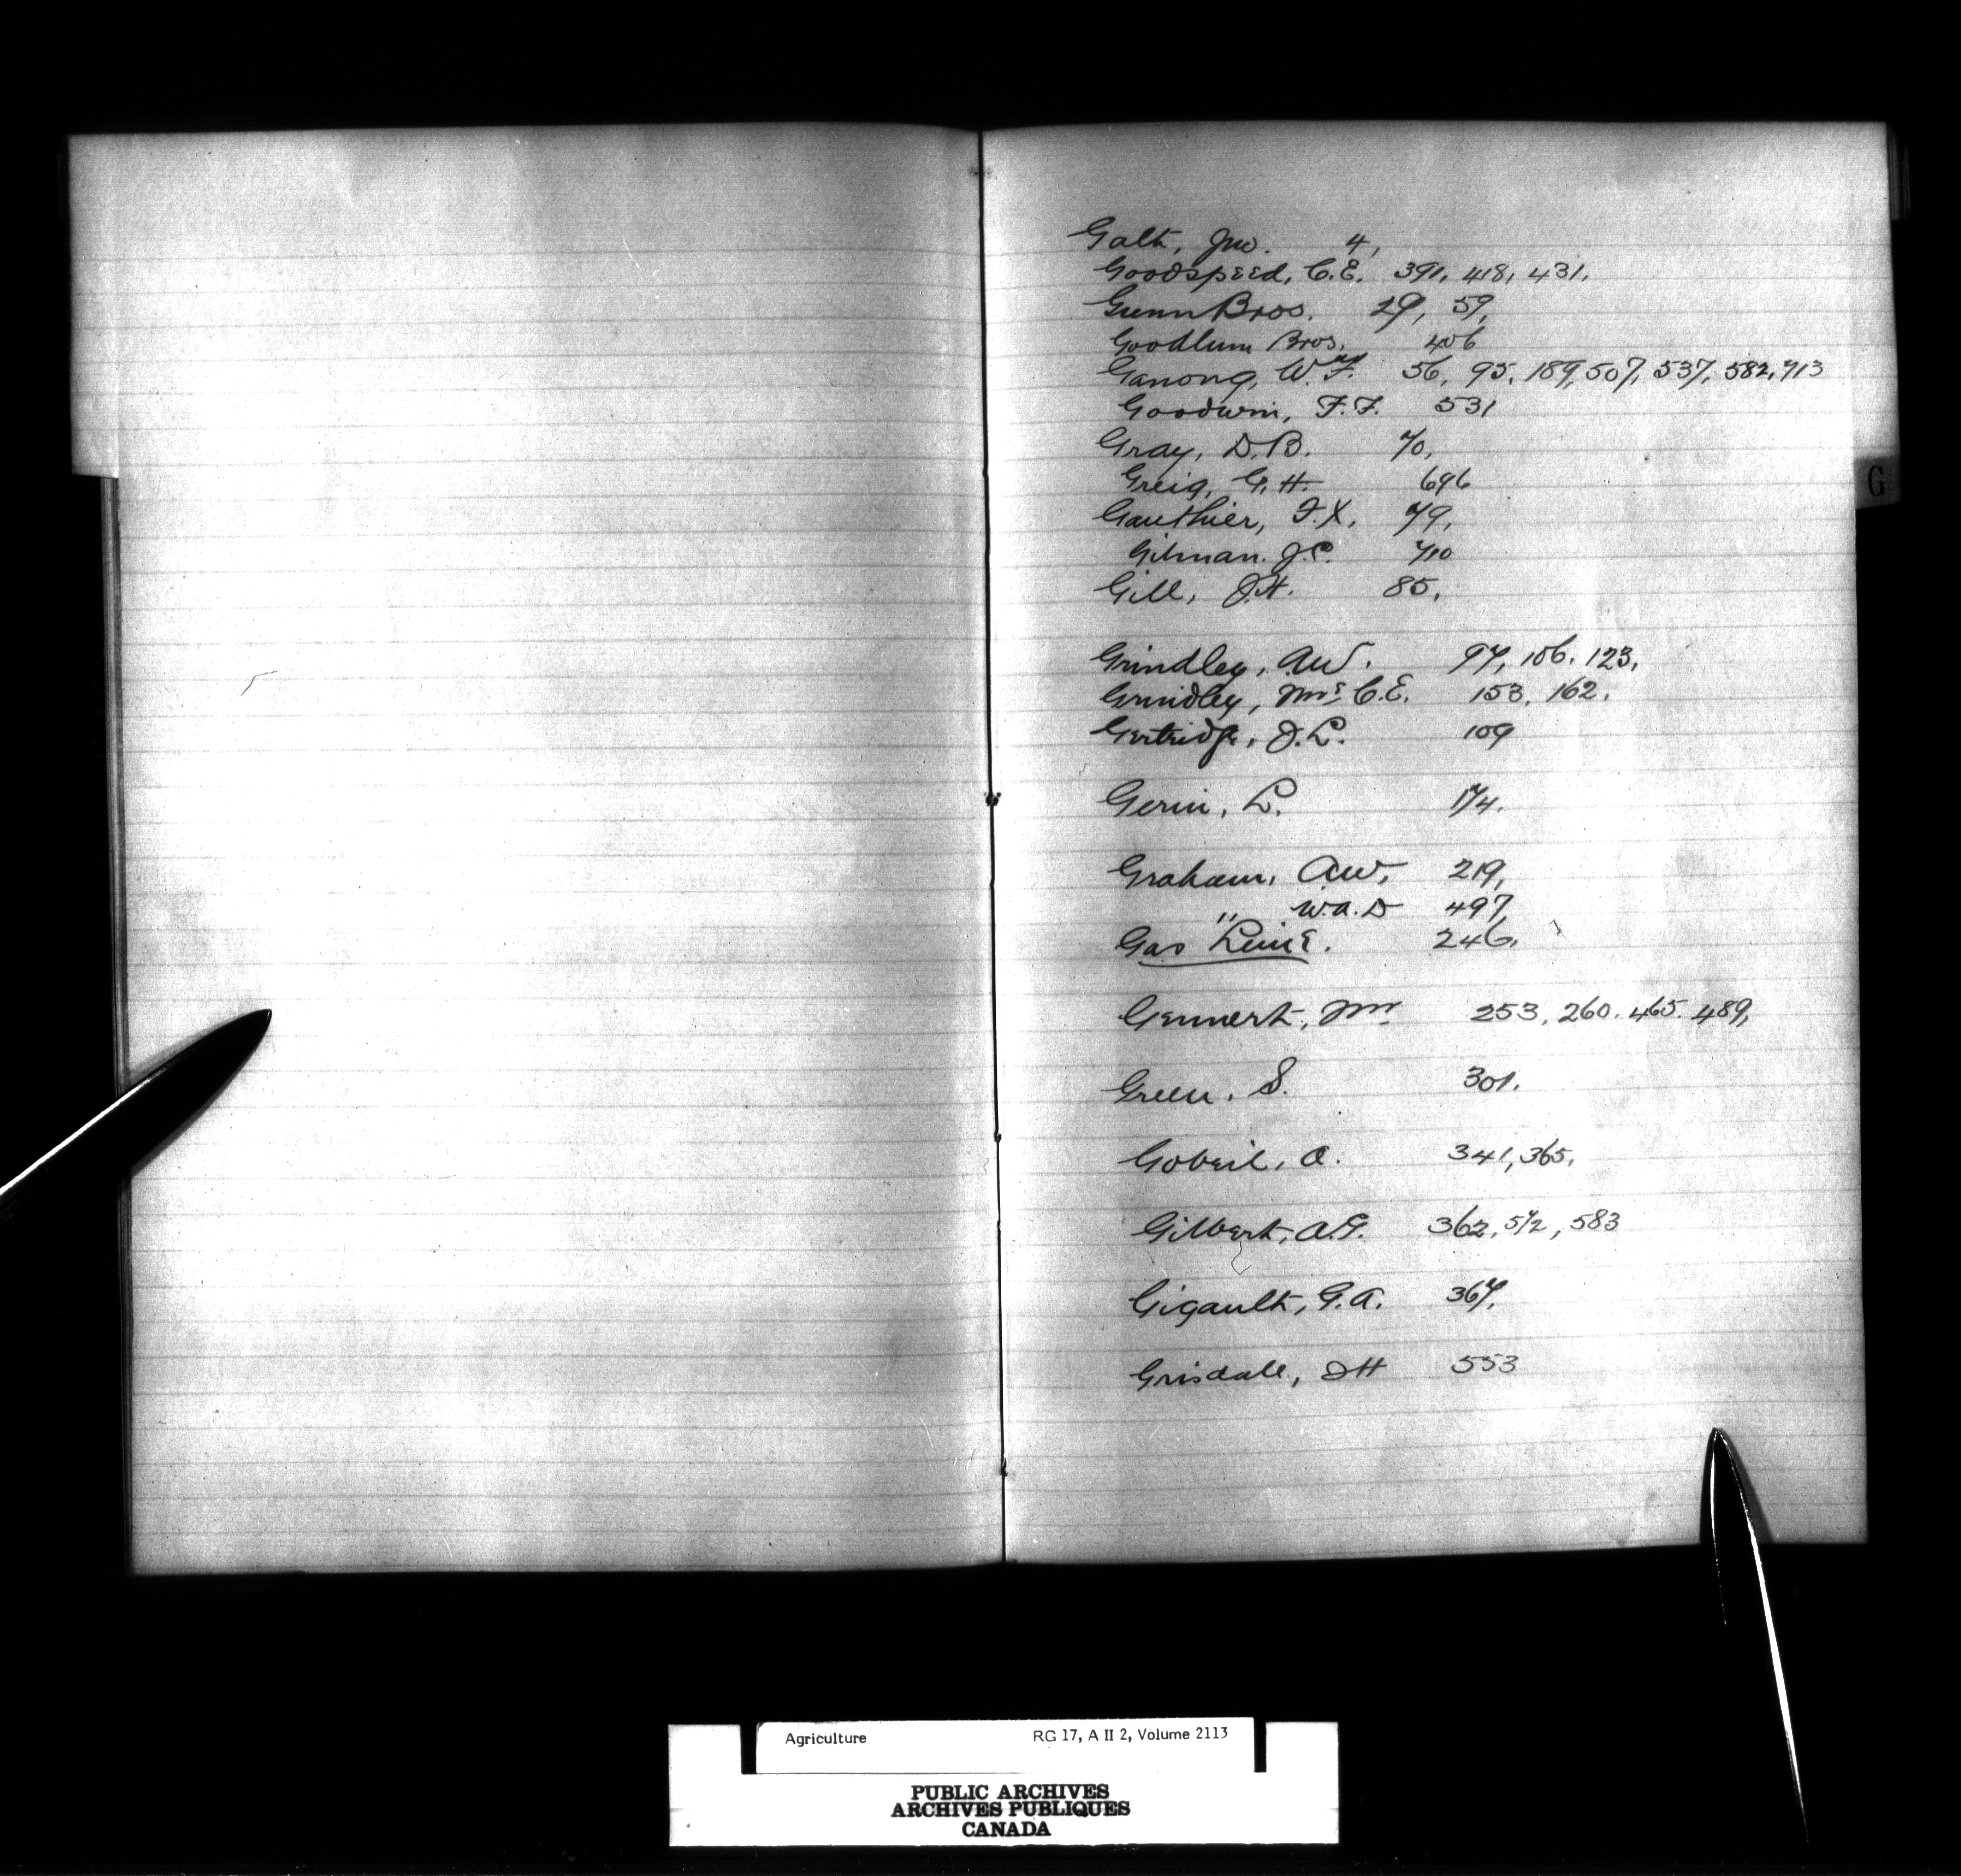 Galt, Jno. 4,
Goodspeed, C.E. 391, 418, 431,
Gunn Bros. 29, 59,
Goodlum Bros. 406
Ganong, W.F. 56, 95, 189, 507, 537, 582, 713
Goodwin, F.F. 531
Gray, D.B. 70,
Greig, G.H. 696
Gauthier, F.X. 79,
Gilman. J.C. 710
Gill, J.H. 85,
G
Grindley, A.W. 97, 106. 123,
Grindley, Mrs C.E. 153, 162,
Gertridge, J.L. 109
Gerin, L. 174.
Graham, A.W. 219,
" W.A.D 497,
Gas Lime. 246,
Gennert, Mr 253, 260. 465. 489,
Green, S. 301.
Gobeil, A. 341, 365,
Gilbert, A.G. 362, 572, 583
Gigault, G.A. 367,
Grisdale, JH 553
Agriculture RG 17, A II 2, Volume 2113
PUBLIC ARCHIVES
ARCHIVES PUBLIQUES
CANADA